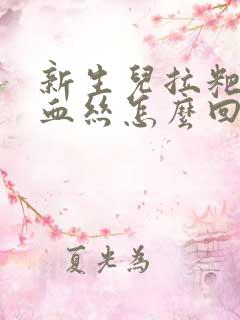 新生兒拉粑
血絲怎麼回
夏光為